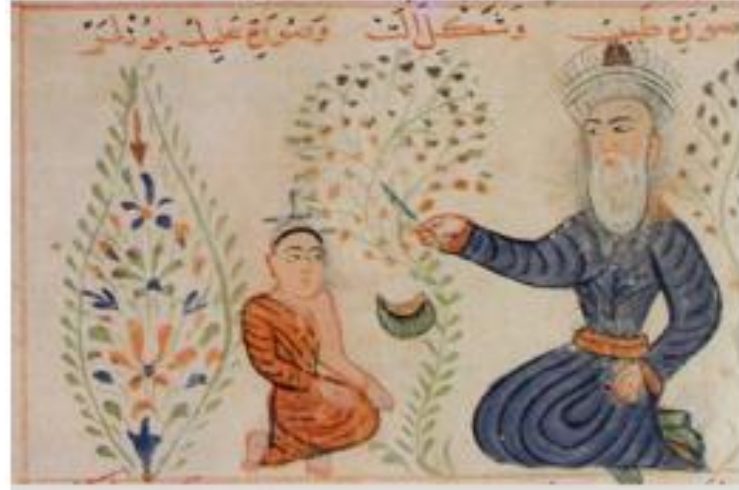 صورة طبيب وشكل آلت وصورة عليل بودلر